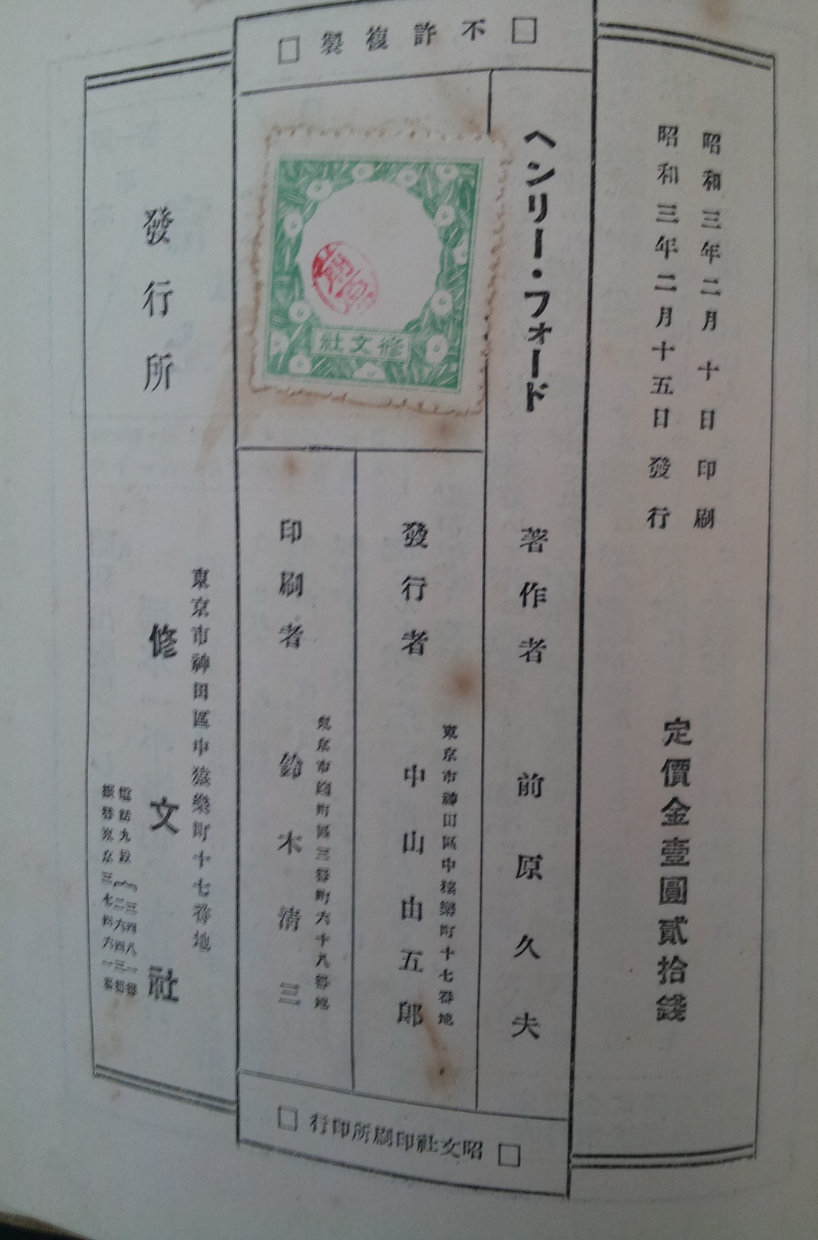 昭和三年二月十日印刷
昭和三年二月十五日發行
定價金壹圓貳拾錢
不許複製
ヘンリー・フォード
著作者 前原久夫
東京市神田區中猿樂町十七番地
發行者 中山由五郎
東京市麹町區三番町六十八番地
印刷者 鈴木清三
修文社
昭文社印刷所印行
發行所
東京市神田區中猿樂町十七番地
修文社
電話九段
振替東京三七四六一番